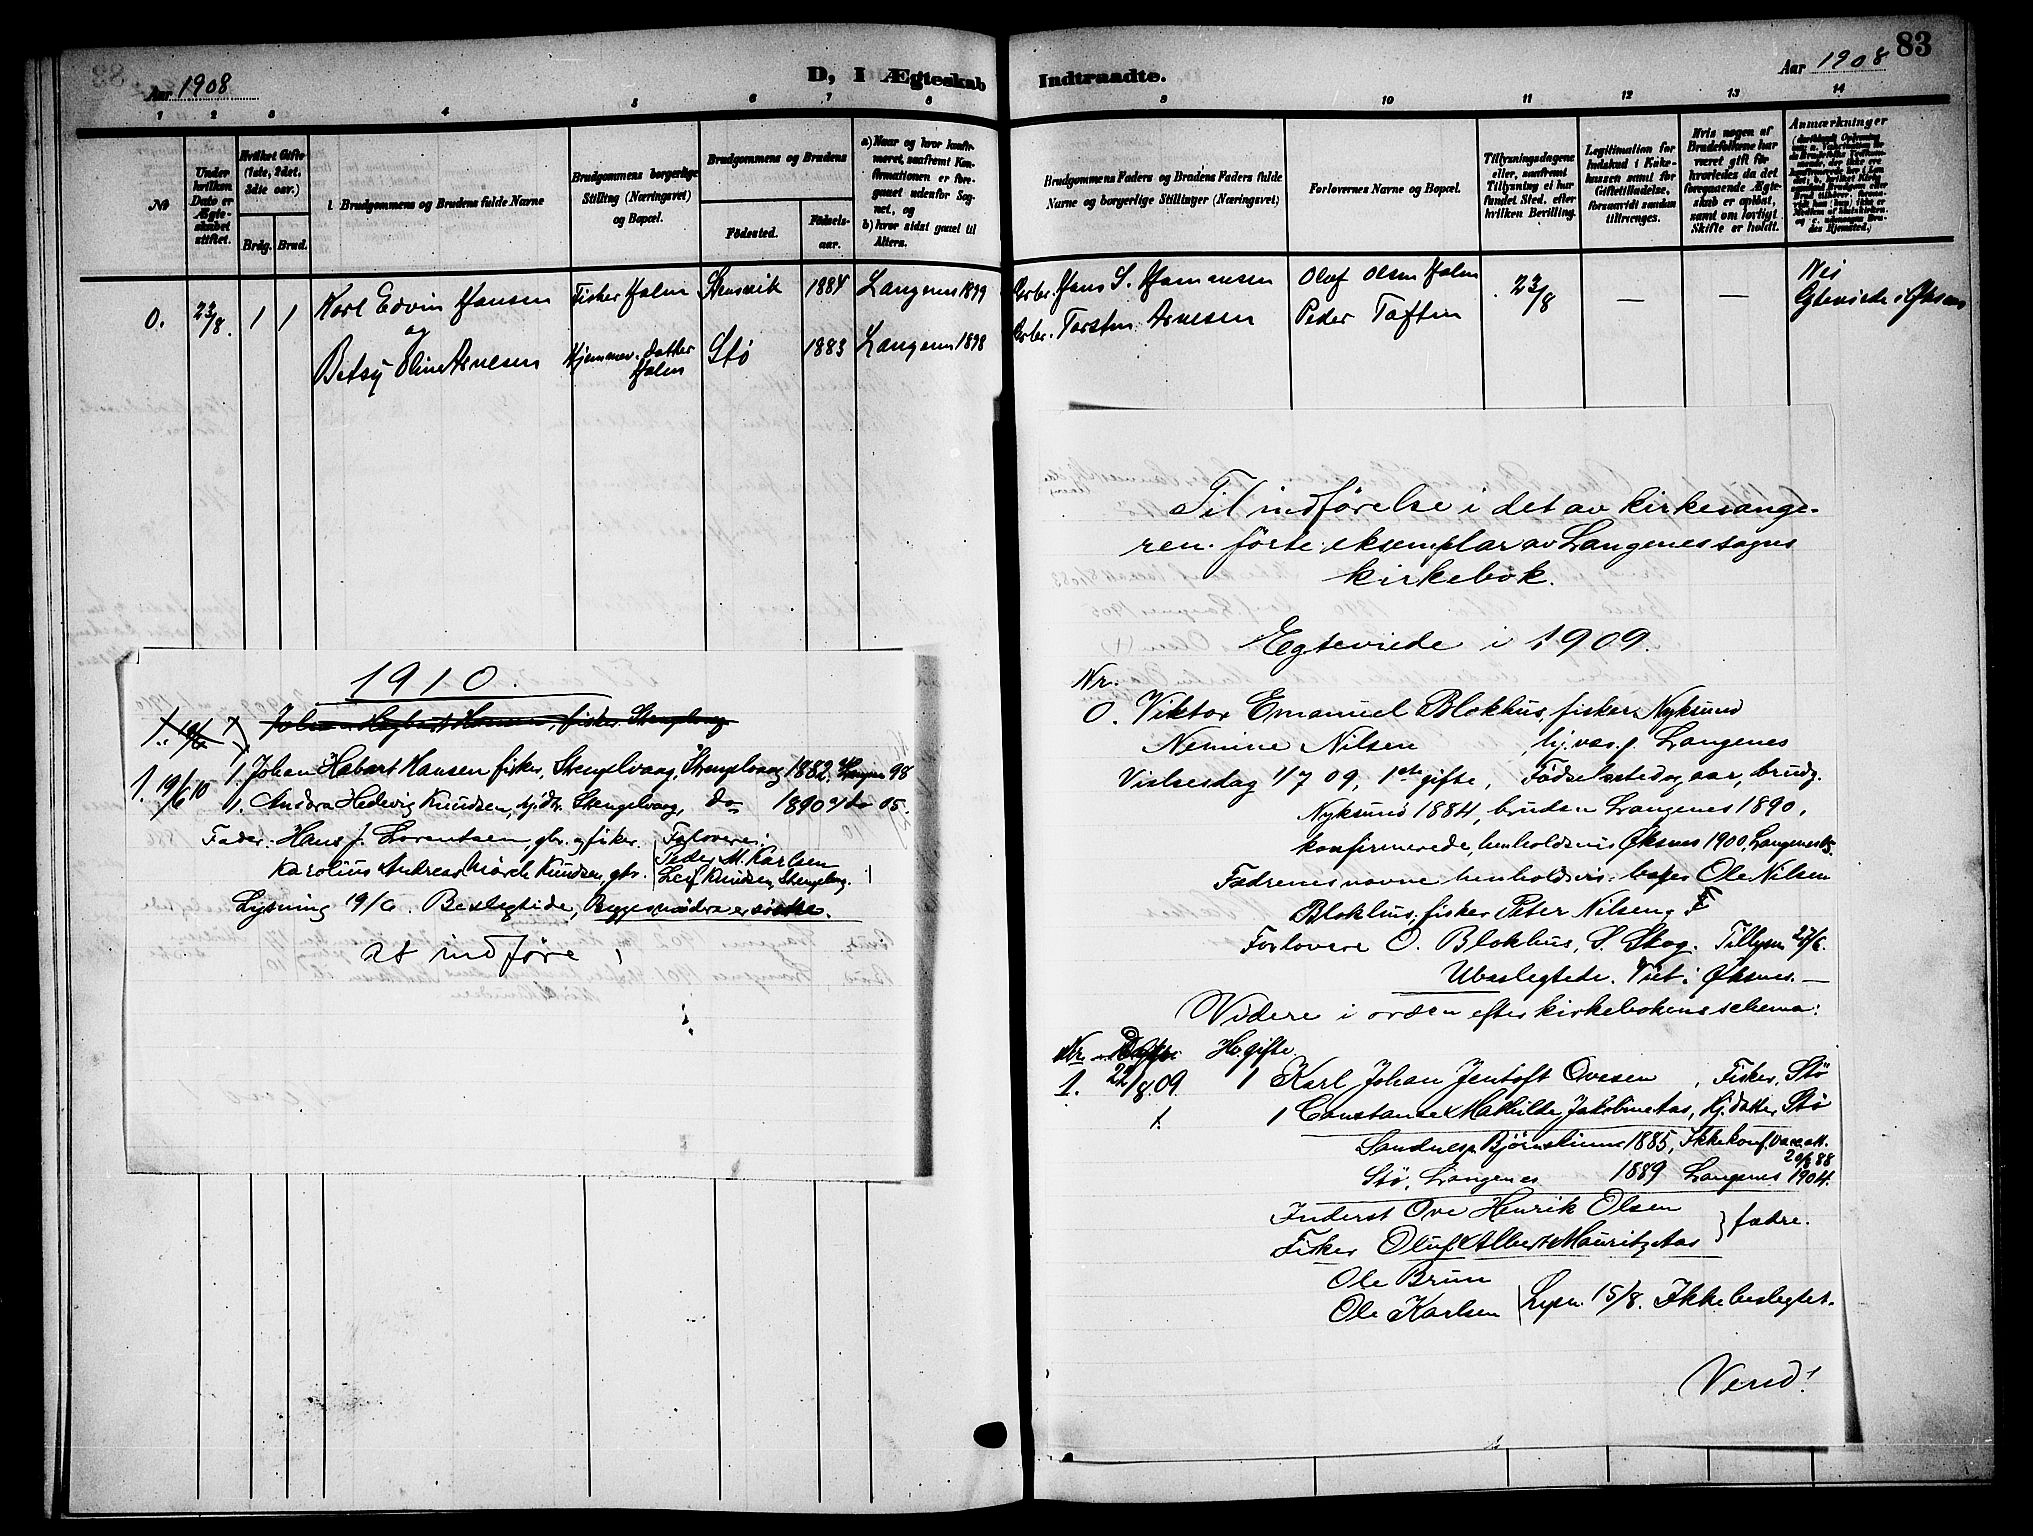 Aar 1908
D, I Ægteskab Indtraadte.
Aar 1908
83
1 2 3 4 5 6 7 8 9 10 11 12 13 14
No
Under hvilken Dato er Ægteskabet stiftet.
Hvilket Gifte (1ste, 2det, 3die osv.)
Brdg. Brud.
Brudgommens og Brudens fulde Navne
Brudgommens borgerlige Stilling (Næringsvei) og Bopæl.
Brudgommens og Brudens
Fødested.
Fødsels-aar.
a) Naar og hvor konfirmeret, saafremt Konfirmationen er foregaaet udenfor Sognet, og
b) hvor sidst gaaet til Alters.
Brudgommens Faders og Brudens Faders fulde Navne og borgerlige Stillinger (Næringsvei)
Forlovernes Navne og Bopæl.
Tillysningsdagene eller, saafremt Tillysning ei har fundet Sted, efter hvilken Bevilling.
Legitimation for Indskud i Enkekassen samt for Giftetilladelse, forsaavidt saadan tiltrænges.
Hvis nogen af Brudefolkene har været gift før hvorledes da det foregaaende Ægteskab er opløst, samt om lovligt Skifte er holdt.
Anmærkninger
0. 23/8. 1 1 Karl Edvin Hansen Fisker Holm 1884 Langenes 1899 Hans S. Hansen Olaf Olsen Holm 23/8 — — Nei
og
Betsy Oline Arnesen Hjemmev. datter Holm Stø 1883 Langenes 1898 Torsten Arnesen Peder Toften
1910.
1. 19/6 10 1. Johan Habart Hansen fisker, Stengelvaag, Stengelvaag 1882, 98
1. Andora Hedevig Knudsen, hj.dtr. Stengelvaag, do 1890 do 05.
Fader: Hans J. Lorentsen, gbr. og fisker. Forlovere:
Karolius Andreas Mörch Knudsen, gbr. Peder M. Karlsen
Leif Knudsen, Stengelvag.
Lysning 19/6. Beslegtede, Begges mödre er söstre.
at indföre
Til indförelse i det av kirkesange-
ren förte eksemplar av Langenes sogns
kirkebok.
Egteviede i 1909.
Nr.
0. Viktor Emanuel Blokhus, fisker Nyksund
Nemine Nilsen Langenes
Vielsesdag 1/7 09, 1ste gifte, Födselssted og aar, brudg.
Nyksund 1884, bruden Langenes 1890,
konfirmerede, henholdsvis Øksnes 1900, Langenes 05.
Fædrenes navne henholdsvis Ole Nilsen
Blokhus, fisker Peter Nilsen, F
Forlovere O. Blokhus, S. Skog. Tillysn 27/6.
Ubeslegtede. Viet i Øksnes. —
Videre i orden efter kirkebokens schema:
Nr. Hv. gifte
1. 22/8.09. 1 Karl Johan Jentoft Ovesen, Fisker, Stö
1. 1 Constanse Mathilde Jakobine Aas, Hj. datter, Stö
Sandnes p. Bjørnskinn 1885, Ikke konf. vacc. att.
20/8 88
Stö, Langenes 1889 Langenes 1904.
Inderst Ove Henrik Olsen
Fisker Oluf Albert Mauritz Aas } fædre.
Ole Brun
Ole Karlsen Lysn. 15/8. Ikke beslegtet.
Vend!